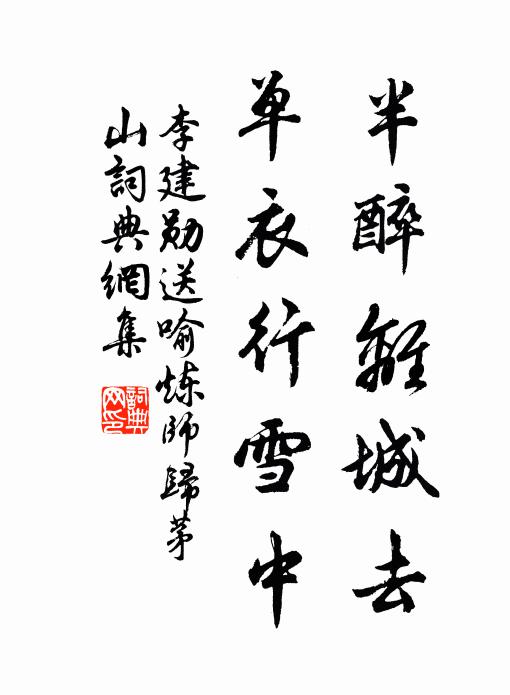 半醉離城去
单衣行雪中
李建勋送喻炼师歸茅
山詞典網集
詞典网印